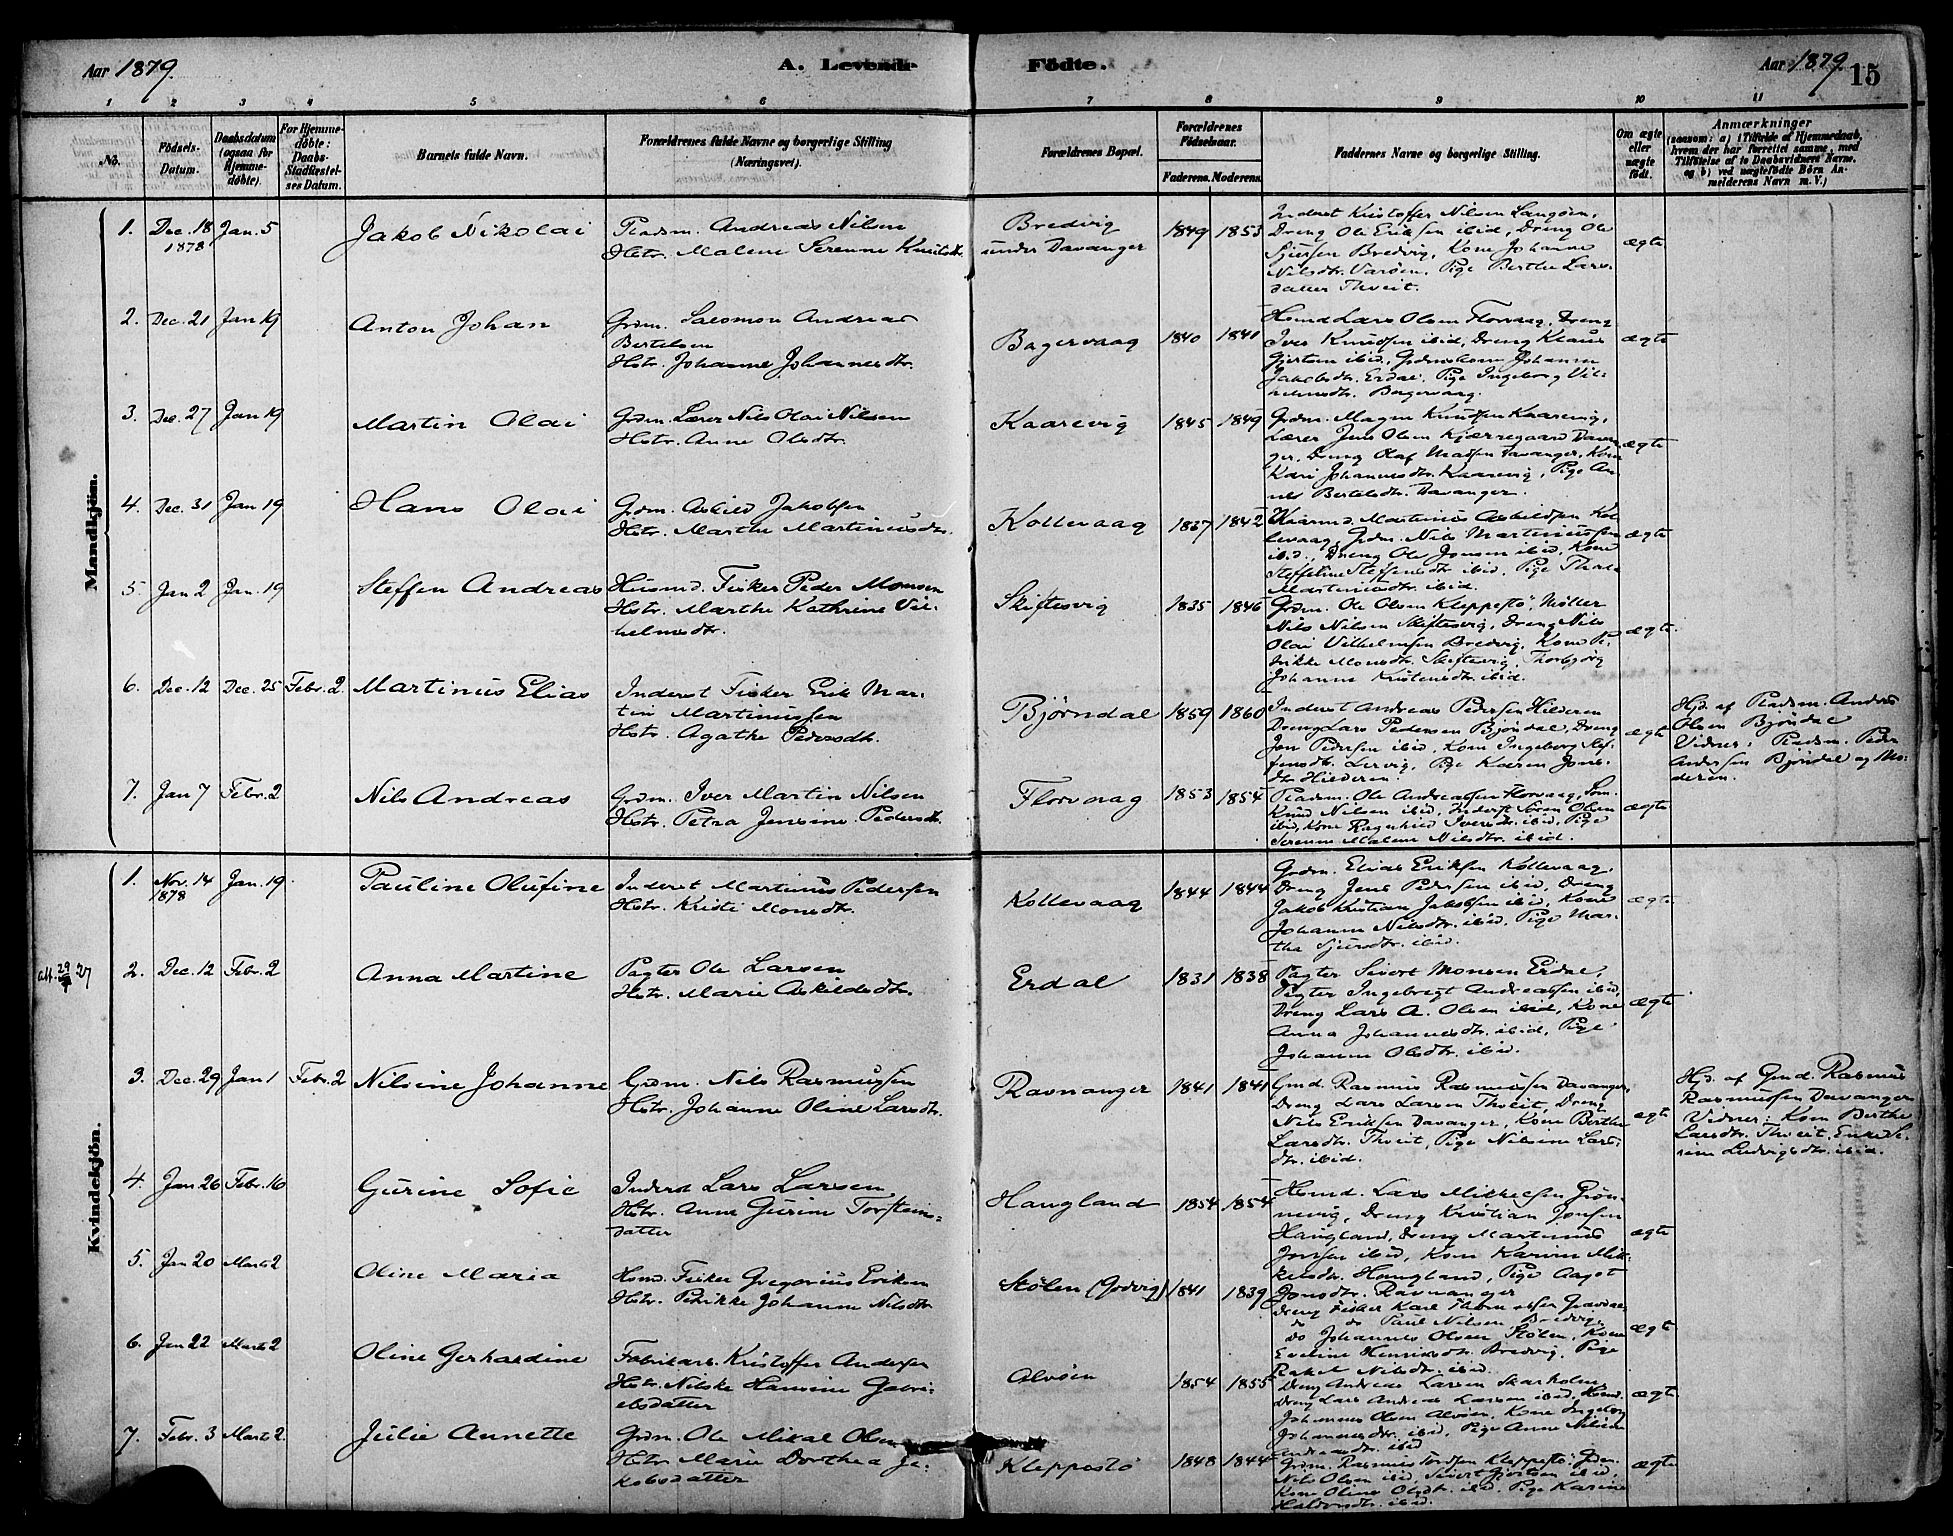 Aar 1879.
A. Levende Födte.
Aar 1879.
15
1 2 3 4 5 6 7 8 9 10 11
No.
Födsels-Datum.
Daabsdatum (ogsaa for Hjemme-döbte).
For Hjemme-döbte: Daabs-Stadfæstel-ses Datum.
Barnets fulde Navn.
Forældrenes fulde Navne og borgerlige Stilling (Næringsvei).
Forældrenes Bopæl.
Forældrenes Födselsaar.
Faderens. Moderens.
Faddernes Navne og borgerlige Stilling.
Om ægte eller uægte födt.
Anmærkninger
(saasom: a) i Tilfælde af Hjemmedaab,
hvem der har forrettet samme, med
Tilföielse af to Daabsvidners Navne.
og b) ved uægtefödte Börn An-
melderens Navn m. V.)
Mandkjön.
1. Dec. 18 1878 Jan. 5 Jakob Nikolai
Pladsm. Andreas Nilsen
Hstr. Malene Serenne Knudsdtr.
Bredvig
under Davanger
1849 1853
Inderst Kristoffer Nilsen Langöen,
Dreng Ole Eriksen ibid, Dreng Ole
Sjursen Bredvig, Kone Johanne
Nilsdtr. Varöen, Pige Berthe Lars-
datter Thveit.
ægte
2. Dec. 21 Jan 19 Anton Johan
Grdm. Salomon Andreas
Bertelsen
Hstr. Johanne Johannesdtr.
Bagervaag 1840 1841
Hsmd Lars Olsen Florvaag, Dreng
Iver Knudsen ibid, Dreng Klaus
Gjertsen ibid, Johanne
Jakobsdtr. Erdal, Pige Ingeborg Vil-
helmsdtr. Bagervaag.
ægte
3. Dec. 27 Jan 19 Martin Olai
Grdm. Lærer Nils Olai Nilsen
Hstr. Anne Olsdtr.
Kaarevig 1845 1849
Grdm. Mogen Knudsen Kaarevig,
Lærer Jens Olsen Kjærregaard Davan-
ger, Dreng Olaf Madsen Davanger, Kone
Kari Johannesdtr. Kaarevig, Pige An-
nes Bertelsdtr. Davanger.
ægte
4. Dec. 31 Jan 19 Hans Olai
Grdm. Askild Jakobsen
Hstr. Marthe Martinusdtr.
Kollevaag 1837 1842
Kaarmd. Martinus Askildsen Kol-
levaag, Grdm. Nils Martinussen
ibid., Dreng Ole Jonsen ibid, Kone
Steffeline Steffensdtr. ibid, Pige
Martinusdtr. ibid.
ægte
5. Jan 2 Jan. 19 Steffen Andreas
Husmd. Fisker Peder Monsen
Hstr. Marthe Kathrine Vil-
helmsdtr.
Skiftesvig 1835 1846
Grdm. Ole Olsen Kleppestö, Möller
Nils Nilsen Skiftesvig, Dreng Nils
Olai Vilhelmsen Bredvig, Kone Pe-
trikke Monsdtr. Skiftesvig, Thorbjörg
Johanne Kristensdtr. ibid.
ægte
6. Dec. 12 Dec. 25 Febr. 2 Martinus Elias
Inderst Fisker Erik Mar-
tin Martinussen
Hstr. Agathe Pedersdtr.
Björndal 1859 1860
Inderst Andreas Pedersen Hilderen
Dreng Lars Pedersen Björndal, Dreng
Jon Pedersen ibid, Kone Ingeborg Stef-
fensdtr. Lervig, Pige Karen Jons-
dtr Hilderen.
ægte
Hjd. af Pladsm. Anders
Olsen Björndal
Vidner: Pladsm. Peder
Andersen Björndal og Mo-
deren.
7. Jan 7 Febr. 2 Nils Andreas
Grdm. Iver Martin Nilsen
Hstr. Petra Jensine Pedersdtr.
Florvaag 1853 1854
Pladsm. Ole Andreassen Florvaag, Søm.
Knud Nilsen ibid, Inderst Sören Olsen
ibid, Kone Ragnhild Iversdtr. ibid, Pige
Serenne Malene Nilsdtr. ibid.
ægte
Kvindekjön.
1. Nov. 14 1878 Jan. 19 Pauline Olufine
Inderst Martinus Pedersen
Hstr. Kristi Monsdtr.
Kollevaag 1844 1844
Grdm. Elias Eriksen Kollevaag,
Dreng Jens Pedersen ibid, Dreng
Jakob Kristian Jakobsen ibid, Kone
Johanne Nilsdtr. ibid, Pige Mar-
the Sjursdtr. ibid.
ægte
att. 29/7 27
2. Dec. 12 Febr. 2 Anna Martine
Pagter Ole Larsen
Hstr. Marie Askildsdtr.
Erdal 1831 1838
Pagter Sivert Monsen Erdal,
Pagter Ingebregt Andreassen ibid,
Dreng Lars A. Olsen ibid, Kone
Anna Johannesdtr. ibid, Pige
Johanne Olsdtr. ibid.
ægte
3. Dec. 29 Jan 1 Febr. 2 Nilsine Johanne
Grdm. Nils Rasmussen
Hstr. Johanne Oline Larsdtr.
Ravnanger 1841 1841
Gmd. Rasmus Rasmussen Davanger,
Dreng Lars Larsen Thveit, Dreng
Nils Eriksen Davanger, Kone Berthe
Larsdtr. Thveit, Pige Nilsine Lars-
dtr. ibid.
ægte
Hjd. af Gmd. Rasmus
Rasmussen Davanger
Vidner: Kone Berthe
Larsdtr. Thveit, Enke Se-
rine Ludvigsdtr. ibid.
4. Jan. 26 Febr. 16 Gurine Sofie
Inderst Lars Larsen
Hstr. Anne Gurine Torsteins-
datter
Haugland 1854 1854
Hsmd. Lars Mikkelsen Grön-
nevig, Dreng Kristian Jonsen
Haugland, Dreng Martinus
Jonsen ibid, Kone Karine Mik-
kelsdtr. Haugland, Pige Aagot
Jonsdtr. Ravnanger
ægte
5. Jan 20 Marts 2 Oline Maria
Hsmd. Fisker Gregorius Eriksen
Hstr. Petrikke Johanne Nilsdtr
Stölen (Godvig) 1841 1839
Dreng Fisker Karl
do do Paul Nilsen, Bredvig,
do Johannes Olsen Stölen, Kone
Eveline Henriksdtr. Bredvig, Pige
Rakel Nilsdtr. ibid.
ægte
6. Jan 22 Marts 2 Oline Gerhardine
Fabrikarb. Kristoffer Andersen
Hstr. Nilske Hansine Gabri-
elsdatter
Alvöen 1854 1855
Dreng Andreas Larsen Skarholmen
Dreng Lars Andreas Larsen ibid, Hsmd.
Johannes Olsen Alvöen, Kone Ingeborg
Johannesdtr. ibid, Pige Anne Nilsine
Andreasdtr. ibid
ægte
7. Febr. 3 Marts 2. Julie Annette
Grdm. Ole Mikal Olsen
Hstr. Marie Dorthea Ja-
kobsdatter
Kleppestö 1848 1844
Grdm. Rasmus Tordsen Kleppestö, Grdm.
Nils Olsen ibid, Sivert Gjertsen ibid,
Kone Oline Olsdtr. ibid, Pige Karine
Haldorsdtr. ibid.
ægte